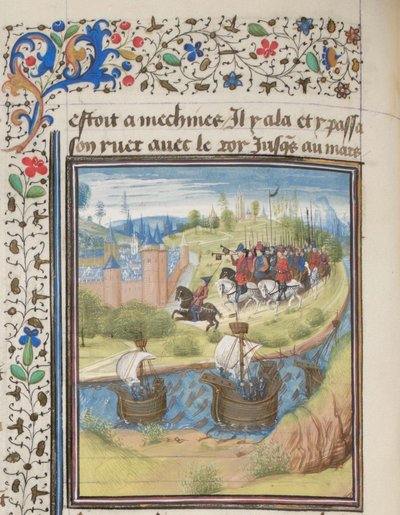 estoit a mechines Il y ala et y passa
son yuer auec le roy Jusqs au mars